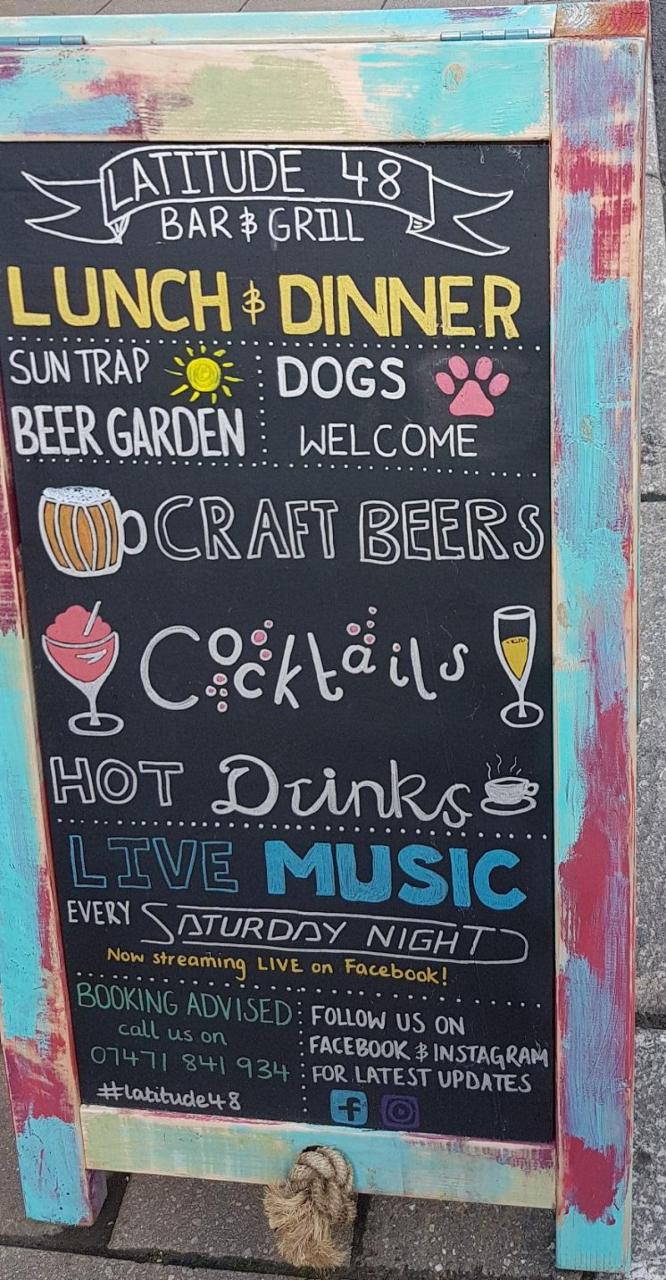 LATITUDE 48
BAR & GRILL
LUNCH & DINNER
SUN TRAP
BEER GARDEN
DOGS
WELCOME
CRAFT BEERS
Cocktails
HOT Drinks
LIVE MUSIC
EVERY SATURDAY NIGHT
Now streaming LIVE on Facebook!
BOOKING ADVISED
call us on
07471 841 934
#latitude48
FOLLOW US ON
FACEBOOK & INSTAGRAM
FOR LATEST UPDATES
f